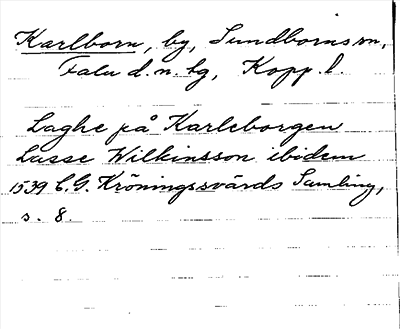 Karlborn, by, Sundborns sn,
Falu d.n. tg, Kopp. l.
Laghe på Karleborgen
Lasse Wilkinsson ibidem
1539 C.G. Kröningssvärds Samling,
s. 8.